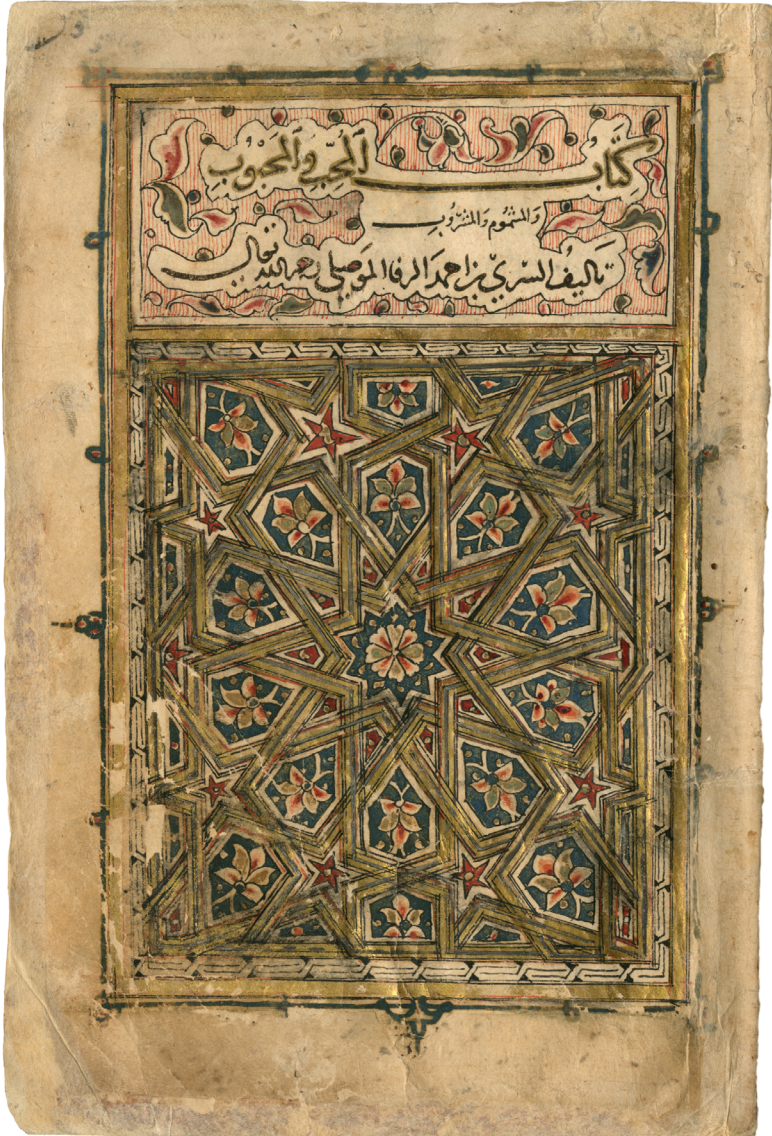 كِتَابُ المُحِبِّ وَالمَحْبُوبِ
وَالمَشْمُومِ وَالمَشْرُوبِ
تَأليفُ السَّرِيّ بن احمد الرفا المَوصِلي رحمه الله تعالى